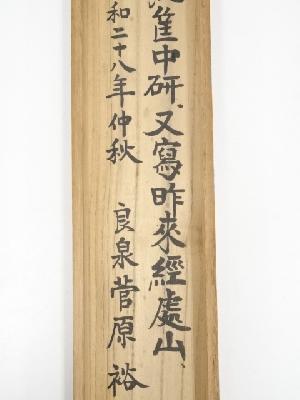 筐中研又寫昨來經處山
和二十八年仲秋 良泉菅原裕